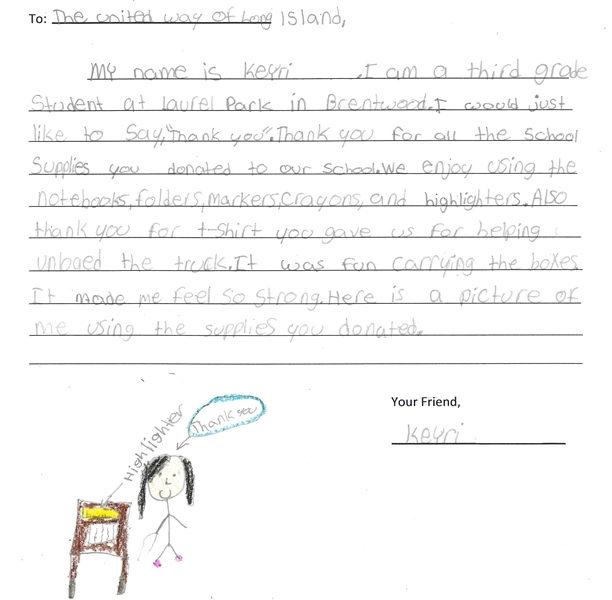 To: The united way of Long Island,
My name is Keyri . I am a third grade
Student at Laurel Park in Brentwood. I would just
like to Say, "Thank you". Thank you for all the School
Supplies you donated to our school. We enjoy using the
notebooks, folders, Markers, Crayons, and highlighters. Also
thank you for t-Shirt you gave us for helping
unloaed the truck. It was fun carrying the boxes.
It made me feel so strong. Here is a picture of
me using the supplies you donated.
Your Friend,
Keyri
Highlighter
Thank you